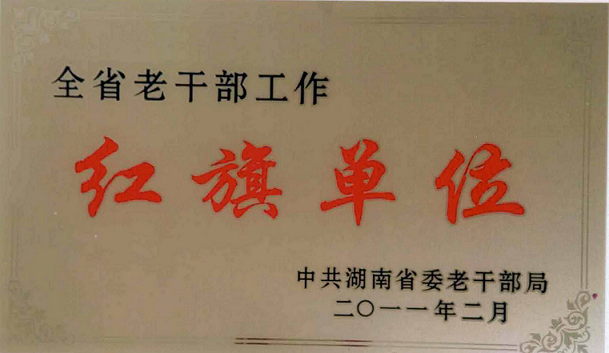 全省老干部工作
红旗单位
中共湖南省委老干部局
二〇一一年二月